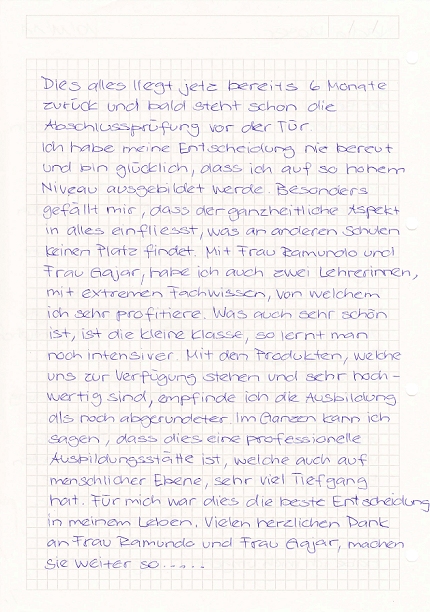 Dies alles liegt jetz bereits 6 Monate
zurück und bald steht schon die
Abschlussprüfung vor der Tür.
Ich habe meine Entscheidung nie bereut
und bin glücklich, dass ich auf so hohem
Niveau ausgebildet werde. Besonders
gefällt mir, dass der ganzheitliche Aspekt
in alles einfliesst, was an anderen Schulen
keinen Platz findet. Mit Frau Ramundo und
Frau Gajar, habe ich auch zwei Lehrerinnen,
mit extremen Fachwissen, von welchem
ich sehr profitiere. Was auch sehr schön
ist, ist die kleine Klasse, so lernt man
noch intensiver. Mit den Produkten, welche
uns zur Verfügung stehen und sehr hoch-
wertig sind, empfinde ich die Ausbildung
als noch abgerundeter. Im Ganzen kann ich
sagen, dass dies eine professionelle
Ausbildungsstätte ist, welche auch auf
menschlicher Ebene, sehr viel Tiefgang
hat. Für mich war dies die beste Entscheidung
in meinem Leben. Vielen herzlichen Dank
an Frau Ramundo und Frau Gajar, machen
sie weiter so.....